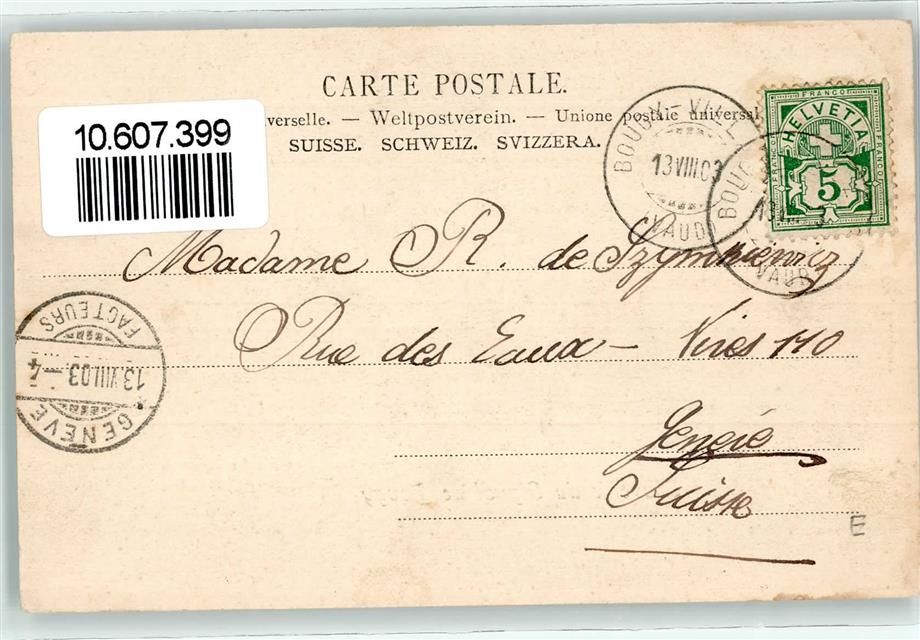 CARTE POSTALE.
verselle. — Weltpostverein. — Unione postale universal
SUISSE. SCHWEIZ. SVIZZERA.
10.607.399
FRANCO
HELVETIA
5
BOUGY-VILL
13 VIII.03
(VAUD)
BOUG
13
VAUD
Madame R. de Szymkiewicz
Rue des Eaux-Vives 110
Genève
Suisse
FACTEURS
13 VIII.03 - 4
GENÈVE
E